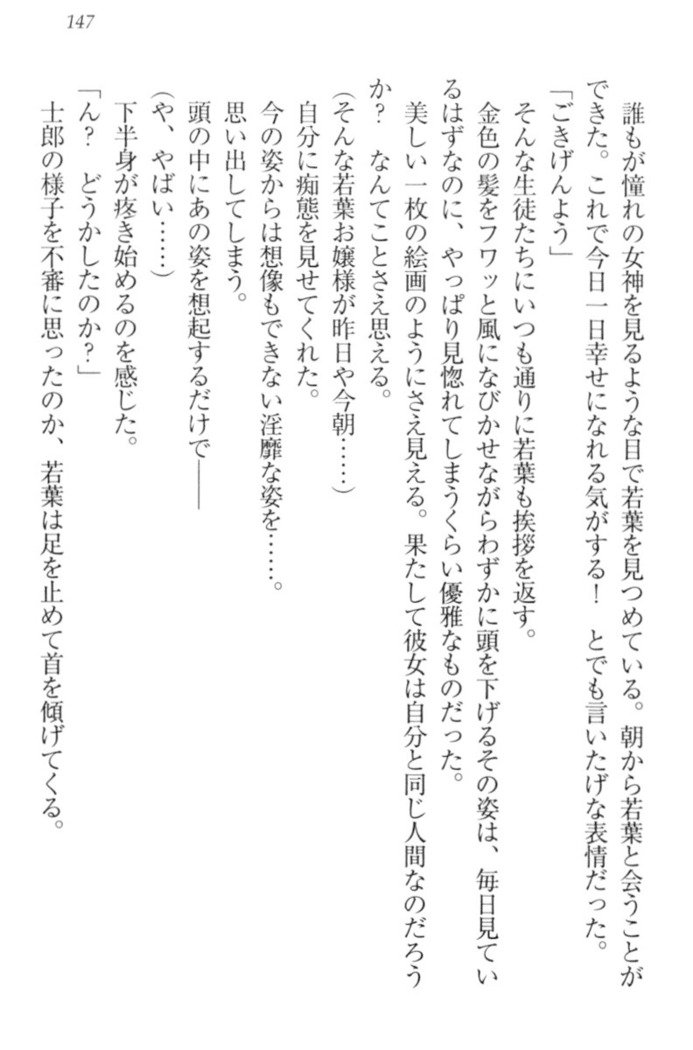 147
誰もが憧れの女神を見るような目で若葉を見つめている。朝から若葉と会うことが
できた。これで今日一日幸せになれる気がする!　とでも言いたげな表情だった。
「ごきげんよう」
そんな生徒たちにいつも通りに若葉も挨拶を返す。
金色の髪をフワッと風になびかせながらわずかに頭を下げるその姿は、毎日見てい
るはずなのに、やっぱり見惚れてしまうくらい優雅なものだった。
美しい一枚の絵画のようにさえ見える。果たして彼女は自分と同じ人間なのだろう
か?　なんてことさえ思える。
(そんな若葉お嬢様が昨日や今朝……)
自分に痴態を見せてくれた。
今の姿からは想像もできない淫靡な姿を……。
思い出してしまう。
頭の中にあの姿を想起するだけで――
(や、やばい……)
下半身が疼き始めるのを感じた。
「ん?　どうかしたのか?」
士郎の様子を不審に思ったのか、若葉は足を止めて首を傾げてくる。